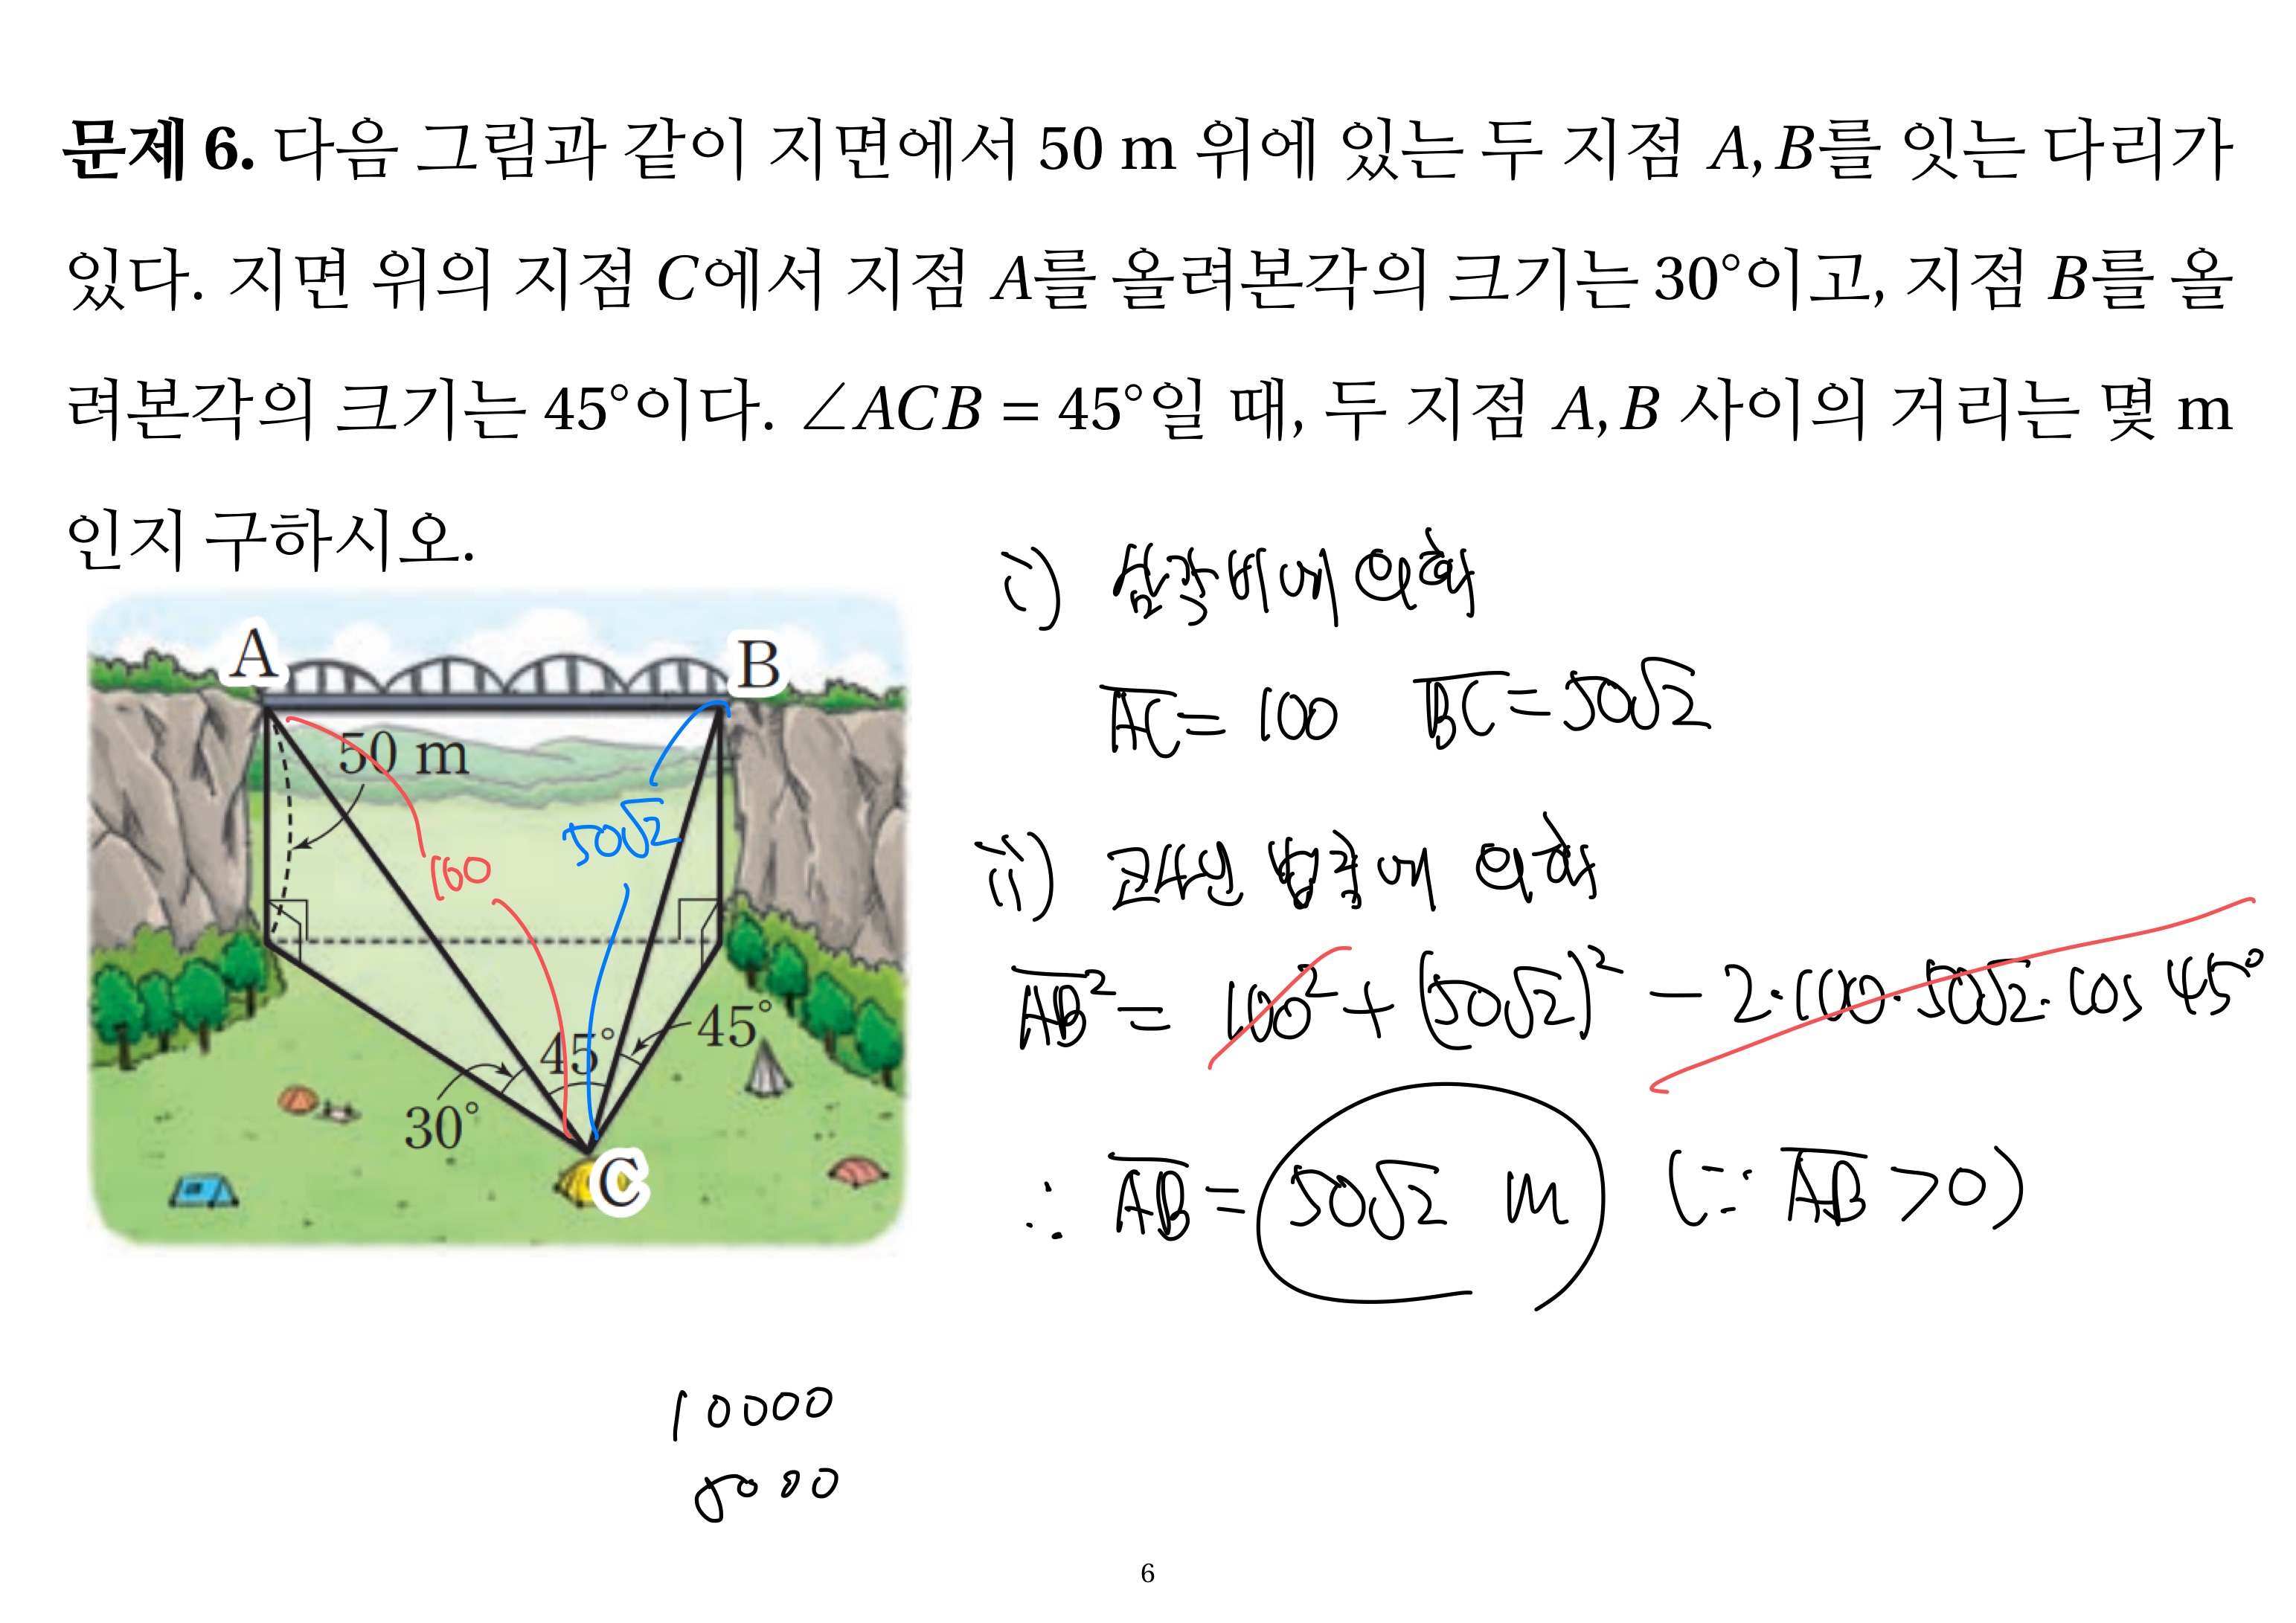 문제 6. 다음 그림과 같이 지면에서 50 m 위에 있는 두 지점 A, B를 잇는 다리가
있다. 지면 위의 지점 C에서 지점 A를 올려본각의 크기는 30°이고, 지점 B를 올
려본각의 크기는 45°이다. ∠ACB = 45°일 때, 두 지점 A, B 사이의 거리는 몇 m
인지 구하시오.
i) 삼각비에 의해
A̅C̅ = 100 B̅C̅ = 50√2
ii) 코사인 법칙에 의해
A̅B̅² = 100² + (50√2)² - 2·100·50√2·cos 45°
∴ A̅B̅ = 50√2 m (∵ A̅B̅ > 0)
A
B
50 m
100
50√2
45°
45°
30°
C
10000
5000
6